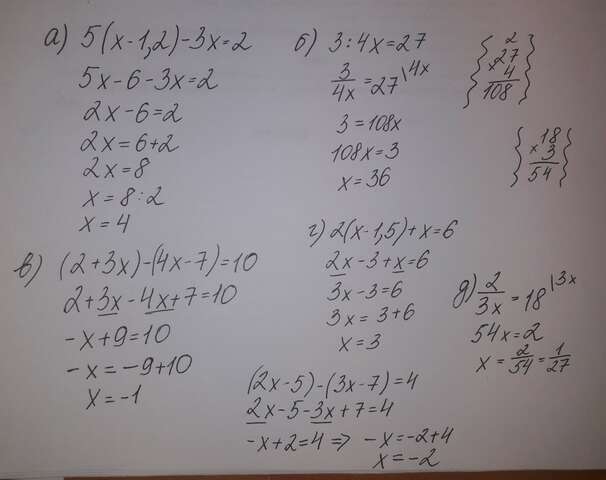 а) 5(x-1,2)-3x=2
5x-6-3x=2
2x-6=2
2x=6+2
2x=8
x=8:2
x=4
б) 3:4x=27
3/4x=27\4x
3=108x
108x=3
x=36
2
27
×4
108
18
×3
54
в) (2+3x)-(4x-7)=10
2+3x-4x+7=10
-x+9=10
-x=-9+10
x=-1
г) 2(x-1,5)+x=6
2x-3+x=6
3x-3=6
3x=3+6
x=3
д) 2/3x=18\3x
54x=2
x=2/54=1/27
(2x-5)-(3x-7)=4
2x-5-3x+7=4
-x+2=4⇒ -x=-2+4
x=-2